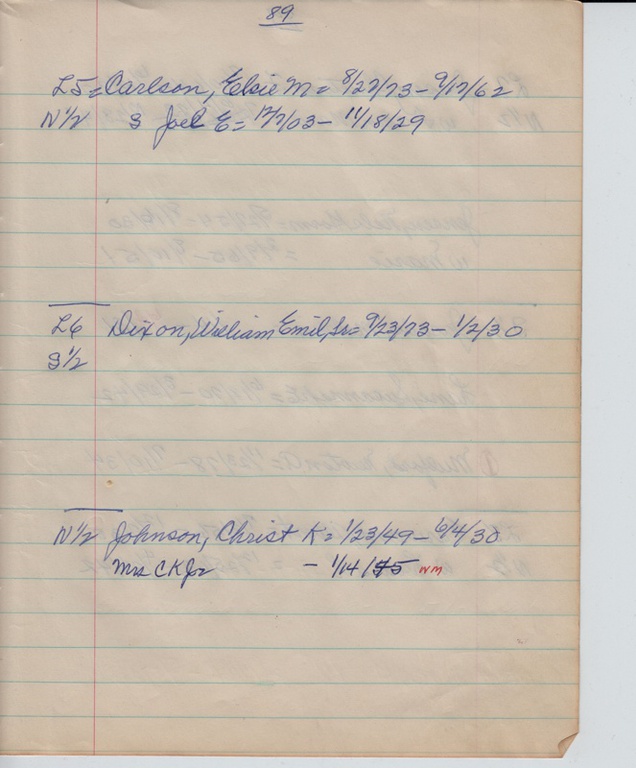 89
L5 = Carlson, Elsie M = 8/22/73 - 9/17/62
N 1/2 S Joel E = 12/7/03 - 11/18/29
L6 Dixon, William Emil, Sr = 9/23/73 - 1/2/30
S 1/2
N 1/2 Johnson, Christ K = 1/23/49 - 6/4/30
Mrs CK Jo - 1/14/ 5 wm